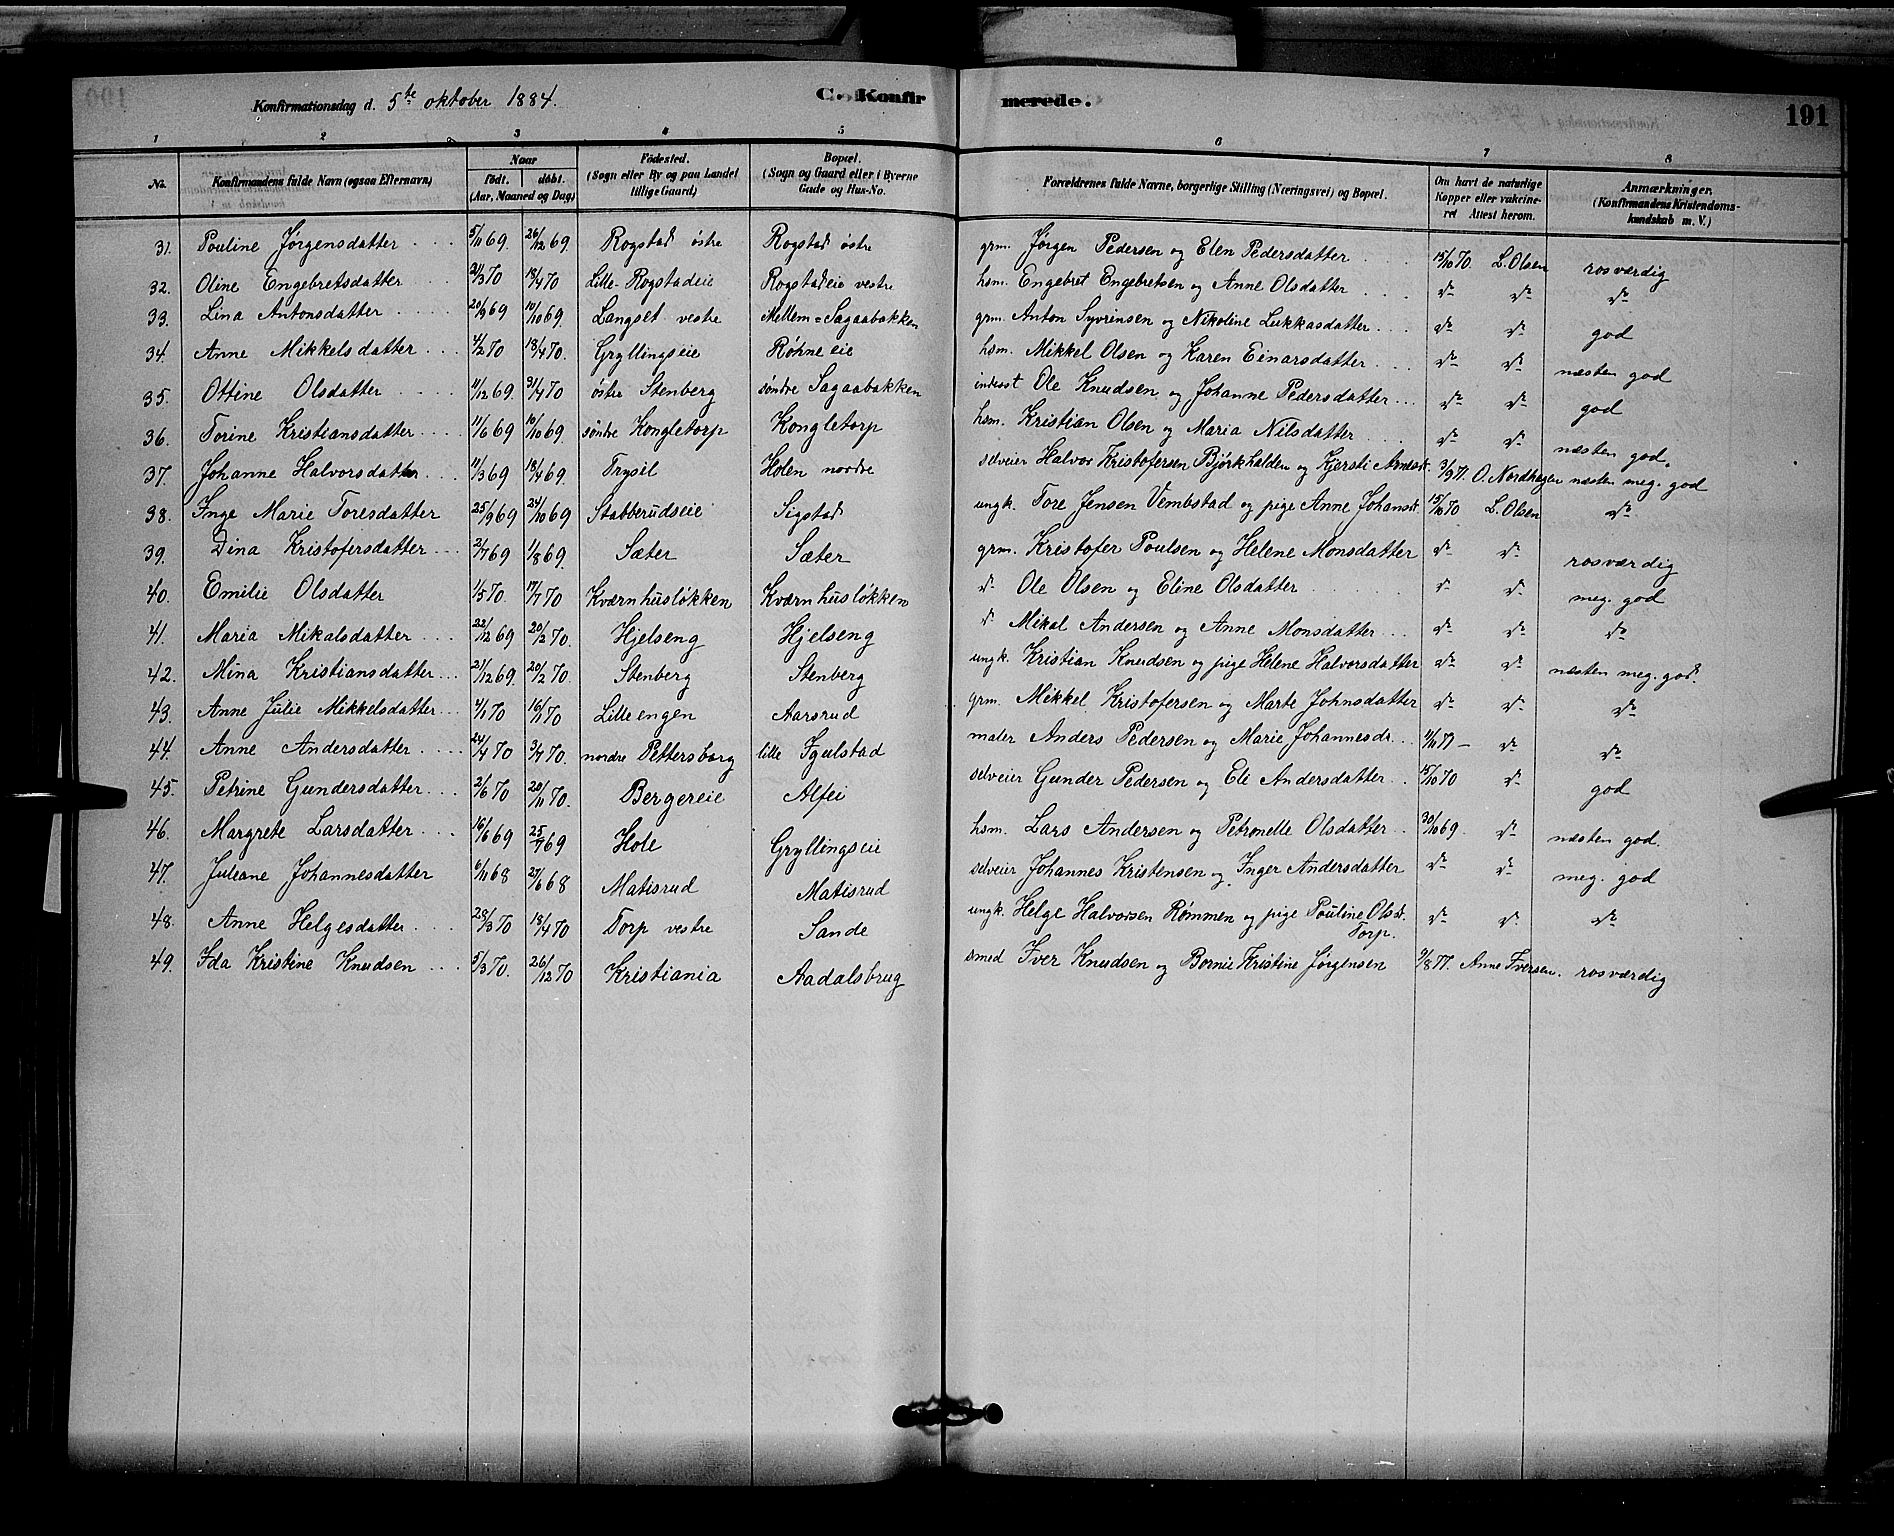 Konfirmationsdag d. 5te oktober 1884. C. Konfirmerede. 191
1 2 3 4 5 6 7 8
No. Konfirmandens fulde Navn (ogsaa Efternavn) Naar født. døbt. (Aar, Maaned og Dag) Fødested. (Sogn eller By og paa Landet tillige Gaard) Bopæl. (Sogn og Gaard eller i Byerne Gade og Hus-No. Forældrenes fulde Navne, borgerlige Stilling (Næringsvei) og Bopæl. Om havt de naturlige Kopper eller vakcineret Attest herom. Anmærkninger, (Konfirmandens Kristendomskundskab m. V.)
31. Pouline Jørgensdatter 5/11 69. 26/12 69. Rogstad østre Rogstad østre grm. Jørgen Pedersen og Elen Pedersdatter 15/10 70. L. Olsen rosværdig
32. Oline Engebretsdatter 21/3 70 18/4 70 Lille-Rogstadeie Rogstadeie vestre hsm. Engebret Engebretsen og Anne Olsdatter do do do
33. Lina Antonsdatter 20/9 69 10/10 69. Langset vestre Mellem=Sagaabakken grm. Anton Syvrinsen og Nikoline Lukkasdatter do do god
34. Anne Mikkelsdatter 4/2 70 18/4 70. Gryllingseie Røhne eie hsm. Mikkel Olsen og Karen Einarsdatter do do næsten god
35. Ottine Olsdatter 11/12 69. 31/4 70 østre Stenberg søndre Sagaabakken inderst Ole Knudsen og Johanne Pedersdatter do do god
36. Torine Kristiansdatter 11/6 69 10/10 69. søndre Kongletorp Kongletorp hsm. Kristian Olsen og Maria Nilsdatter do do næsten god.
37. Johanne Halvorsdatter 11/3 69 18/4 69. Trysil Holen nordre selveier Halvor Kristofersen Bjørkhalden og Kjersti Arnesd. 3/9 71. O. Nordhagen næsten meg. god
38. Inge Marie Toresdatter 25/9 69 24/10 69 Stabberudseie Sigstad ungk. Tore Jensen Vembstad og pige Anne Johansd. 15/10 70 L. Olsen do
39. Dina Kristofersdatter 2/7 69 1/8 69. Sæter Sæter grm. Kristofer Poulsen og Helene Monsdatter do do rosværdig
40. Emilie Olsdatter 1/5 70. 17/7 70 Kværnhusløkken Kværnhusløkken do Ole Olsen og Eline Olsdatter do do meg. god
41. Maria Mikalsdatter 22/12 69 20/2 70. Hjelseng Hjelseng do Mikal Andersen og Anne Monsdatter do do do
42. Mina Kristiansdatter 21/12 69. 20/2 70. Stenberg Stenberg ungk. Kristian Knudsen og pige Helene Halvorsdatter do do næsten meg. god.
43. Anne Julie Mikkelsdatter 4/1 70 16/1 70 Lilleengen Aarsrud grm. Mikkel Kristofersen og Marte Johnsdatter do do do
44. Anne Andersdatter 24/4 70 3/7 70. nordre Pettersborg lille Igulstad maler Anders Pedersen og Marie Johannesdr. 11/11 71 — do do
45. Petrine Gundersdatter 2/6 70 20/11 70. Bergereie Alfei selveier Gunder Pedersen og Eli Andersdatter 15/10 70 do god
46. Margrete Larsdatter 16/6 69 25/7 69 Hole Gryllingseie hsm. Lars Andersen og Petronelle Olsdatter 30/10 69. do næsten god.
47. Juliane Johannesdatter 6/11 68 27/6 68 Matisrud Matisrud selveier Johannes Kristensen og Inger Andersdatter do do meg. god
48. Anne Helgesdatter 28/3 70 18/4 70 Torp vestre Sande ungk. Helge Halvorsen Rømmen og pige Pouline Olsd. Torp. do do do
49. Ida Kristine Knudsen 5/3 70. 26/12 70 Kristiania Aadalsbrug smed Iver Knudsen og Bornie Kristine Jørgensen 9/8 77. Anne Iversen. rosværdig